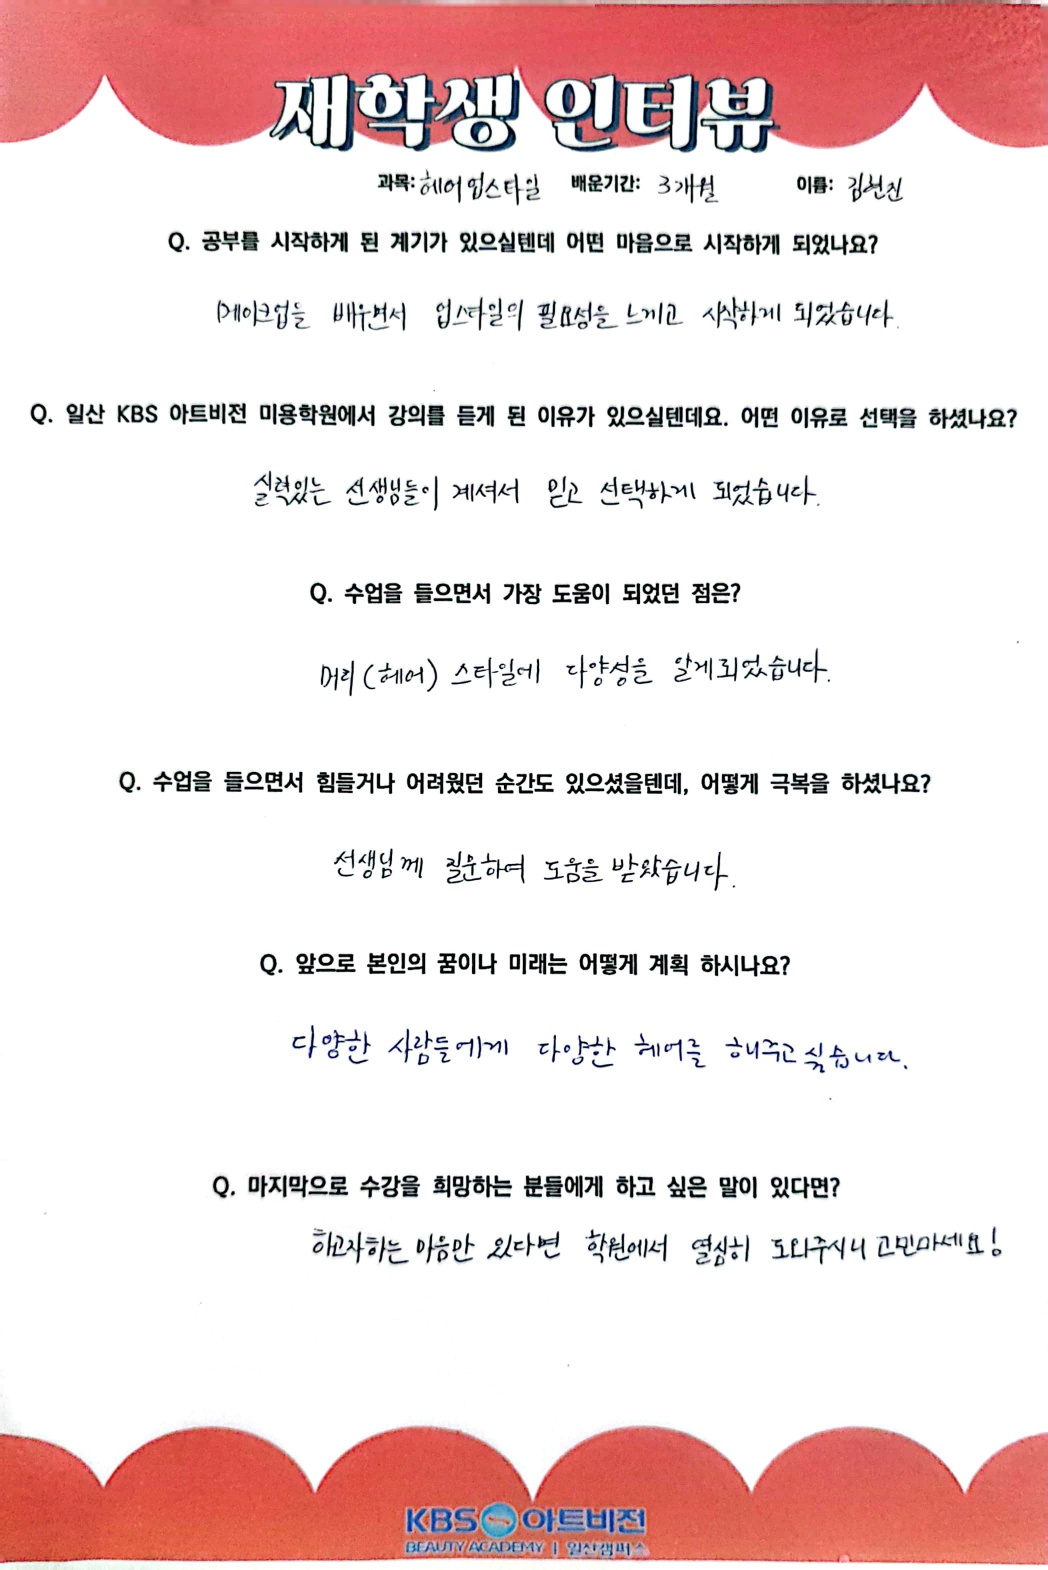 재학생 인터뷰
과목: 헤어 업스타일 배운기간: 3개월 이름: 김현진
Q. 공부를 시작하게 된 계기가 있으실텐데 어떤 마음으로 시작하게 되었나요?
메이크업을 배우면서 업스타일의 필요성을 느끼고 시작하게 되었습니다.
Q. 일산 KBS 아트비전 미용학원에서 강의를 듣게 된 이유가 있으실텐데요. 어떤 이유로 선택을 하셨나요?
실력있는 선생님들이 계셔서 믿고 선택하게 되었습니다.
Q. 수업을 들으면서 가장 도움이 되었던 점은?
머리(헤어) 스타일에 다양성을 알게되었습니다.
Q. 수업을 들으면서 힘들거나 어려웠던 순간도 있으셨을텐데, 어떻게 극복을 하셨나요?
선생님께 질문하여 도움을 받았습니다.
Q. 앞으로 본인의 꿈이나 미래는 어떻게 계획 하시나요?
다양한 사람들에게 다양한 헤어를 해주고 싶습니다.
Q. 마지막으로 수강을 희망하는 분들에게 하고 싶은 말이 있다면?
하고자하는 마음만 있다면 학원에서 열심히 도와주시니 고민마세요!
KBS 아트비전
BEAUTY ACADEMY | 일산캠퍼스